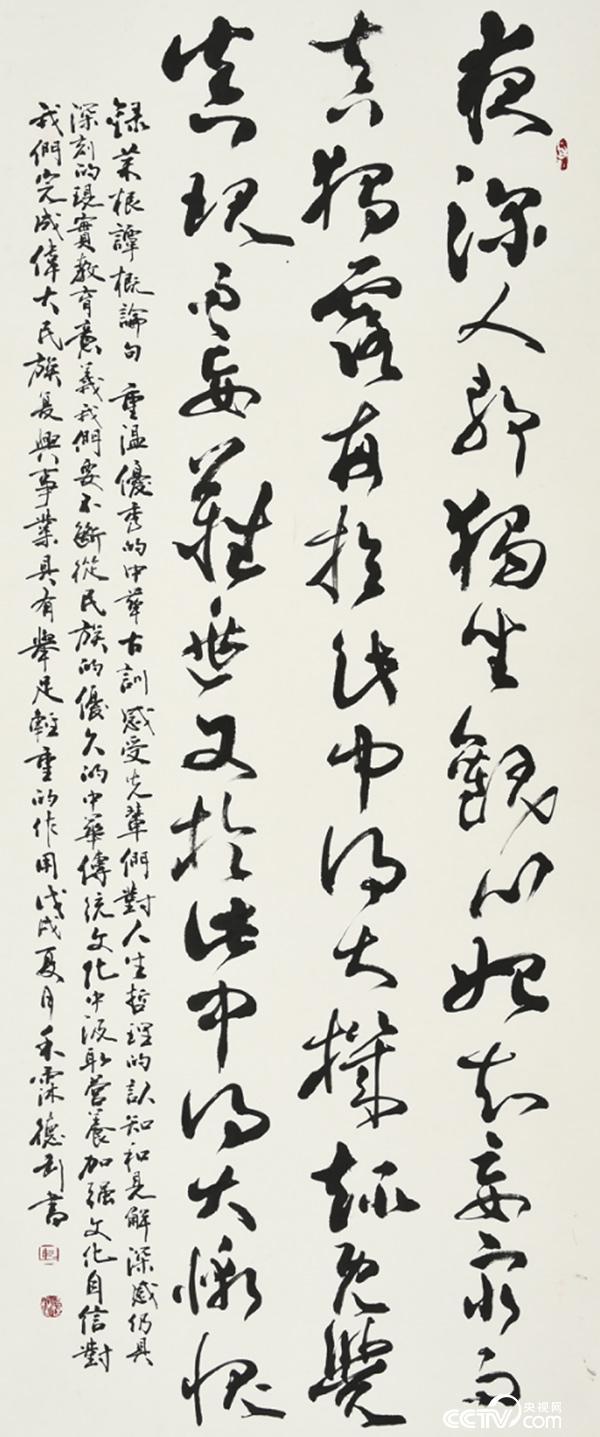 夜深人靜獨坐觀心始知妄窮而
真獨露每於此中得大機趣既覺
真現而妄難逃又於此中得大慚愧
錄菜根譚概論句 重溫優秀的中華古訓感受先輩們對人生哲理的認知和見解深感仍具
深刻的現實教育意義我們要不斷從民族的優久的中華傳統文化中汲取營養加强文化自信對
我們完成偉大民族复興事業具有舉足輕重的作用戊戌夏月禾霖德利書
央视网
CCTV.com